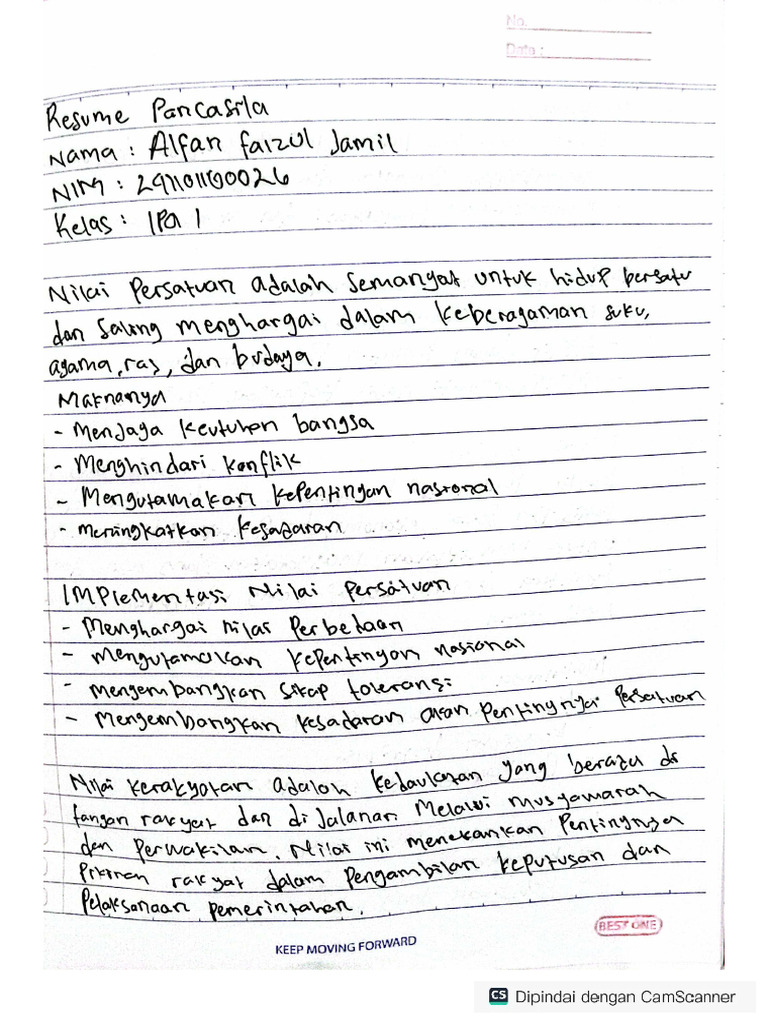 No.
Date :
Resume Pancasila
Nama : Alfan Faizul Jamil
NIM : 241101100026
Kelas : IPA 1
Nilai Persatuan adalah Semangat untuk hidup bersatu
dan Saling menghargai dalam keberagaman suku,
agama, ras, dan budaya.
Maknanya
- Menjaga keutuhan bangsa
- Menghindari konflik
- Mengutamakan kepentingan nasional
- meningkatkan kesadaran
Implementasi Nilai Persatuan
- Menghargai nilai Perbedaan
- mengutamakan kepentingan nasional
- mengembangkan sikap toleransi
- Mengembangkan kesadaran akan pentingnya Persatuan
Nilai kerakyatan adalah kedaulatan yang berada di
tangan rakyat dan di jalankan Melalui musyawarah
dan Perwakilan. Nilai ini menekankan Pentingnya
Pikiran rakyat dalam Pengambilan keputusan dan
Pelaksanaan pemerintahan.
BEST ONE
KEEP MOVING FORWARD
CS Dipindai dengan CamScanner